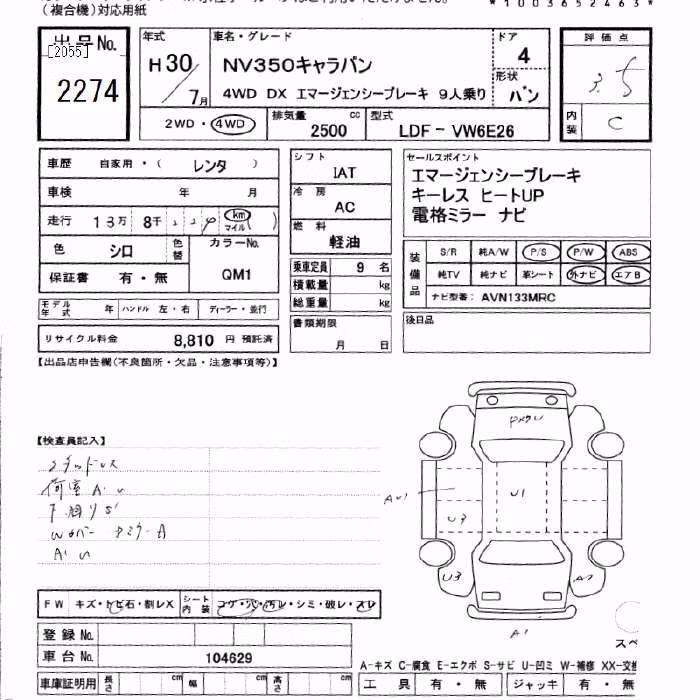 （複合機）対応用紙
*1003652463*
出品No.
[2055]
2274
年式
H30/7月
車名・グレード
NV350キャラバン
4WD DX エマージェンシーブレーキ 9人乗り
ドア
4
形状
バン
評価点
3.5
内装
C
2WD・4WD
排気量
2500 cc
型式
LDF-VW6E26
車歴 自家用・( レンタ )
車検 年 月
走行 13万 8千 km マイル ( )
色 シロ 色替
カラーNo.
QM1
保証書 有・無
モデル年式 年 ハンドル 左・右 ディーラー・並行
リサイクル料金 8,810 円 預託済
シフト
IAT
冷房
AC
燃料
軽油
乗車定員 9 名
積載量 kg
総重量 kg
書類期限
月 日
セールスポイント
エマージェンシーブレーキ
キーレス ヒートUP
電格ミラー ナビ
装備品
S/R 純A/W P/S P/W ABS
純TV 純ナビ 革シート 外ナビ エアB
ナビ型番: AVN133MRC
後日品
【出品店申告欄(不良箇所・欠品・注意事項等)】
【検査員記入】
荷室 A U
A U
U1
U3
U3
A1
FW キズ・トビ石・割レX
シート内装 コゲ・穴・汚レ・シミ・破レ・スレ
登録No.
車台No. 104629
車庫証明用 長さ cm 幅 cm 高さ cm
スペ
A-キズ C-腐食 E-エクボ S-サビ U-凹ミ W-補修 XX-交換
工具 有・無 ジャッキ 有・無